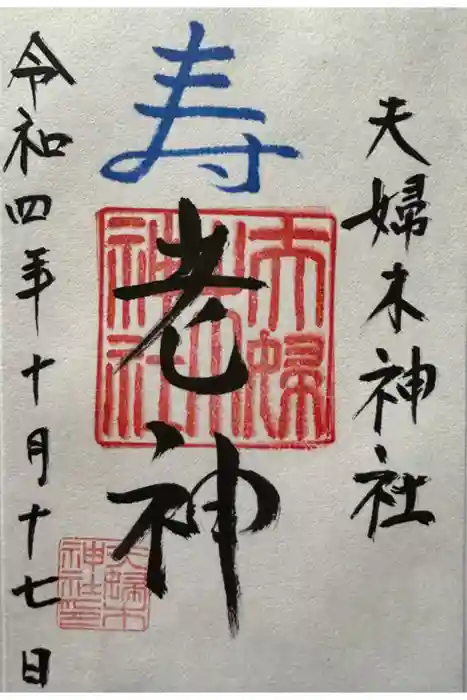 夫婦木神社
寿
老神
夫婦木神社
夫婦木神社
令和四年十月十七日